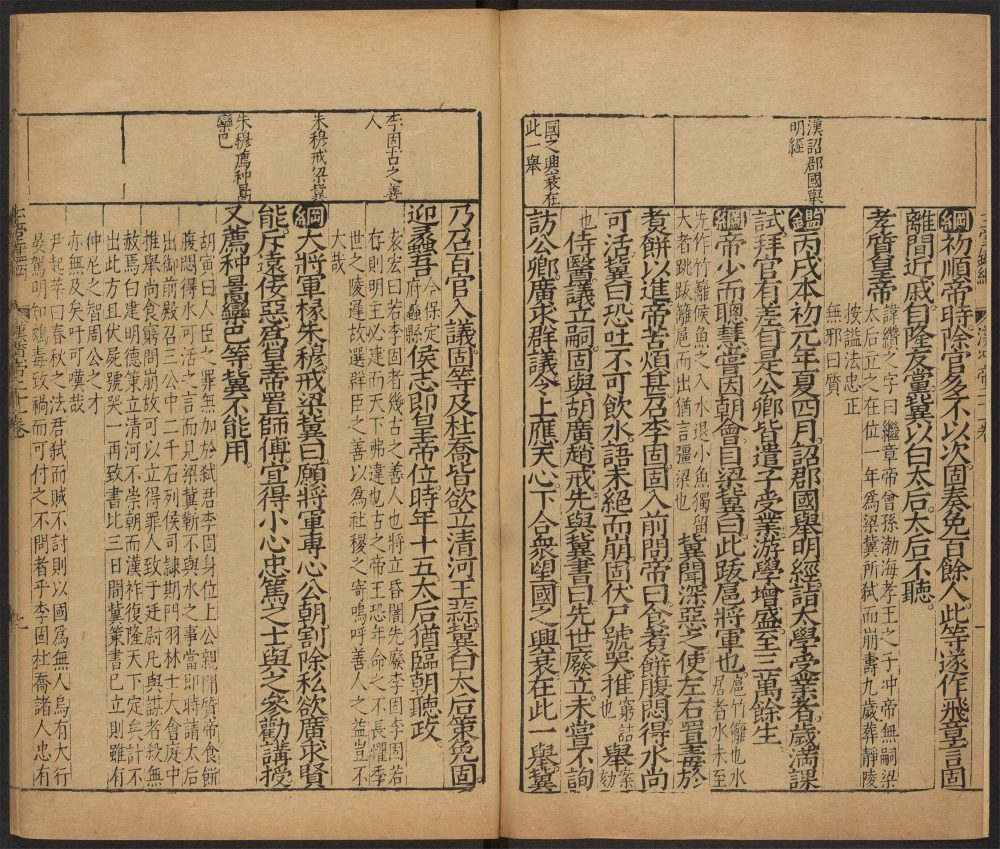 漢詔郡國舉
明經
國之興衰在
此一舉
綱初順帝時除官多不以次固奏免百餘人此等遂作飛章言固
離間近戚自隆友黨冀以白太后太后不聽。
孝質皇帝
諱纘之字曰繼章帝曾孫渤海孝王之子冲帝無嗣梁
太后立之在位一年爲梁冀所弒而崩壽九歲葬靜陵
按謚法忠正
無邪曰質
鑑丙戌本初元年夏四月詔郡國舉明經詣太學受業者歲滿課
試拜官有差自是公卿皆遣子受業游學增盛至三萬餘生
綱帝少而聰慧嘗因朝會目梁冀曰此跋扈將軍也。扈竹籬也水
居者水未至
先作竹籬候魚之入水退小魚獨留
大者跳跋籬扈而出猶言彊梁也
冀聞深惡之使左右置毒於
煮餅以進帝苦煩甚召李固固入前問帝曰食煮餅腹悶得水尚
可活冀曰恐吐不可飲水語未絕而崩固伏尸號哭推窮詰案劾也舉
也侍醫議立嗣固與胡廣趙戒先與冀書曰先世廢立未嘗不詢
訪公卿廣求群議令上應天心下合衆望國之興衰在此一舉冀
李固古之善
人
朱穆戒梁冀
朱穆薦种暠
欒巴
乃召百官入議固等及杜喬皆欲立清河王蒜冀白太后策免固
迎蠡吾今保定府蠡縣侯志即皇帝位時年十五太后猶臨朝聽政。
袁宏曰若李固者幾古之善人也將立昏闇先廢李固李固若
存則明主必建而天下弗違也古之帝王恐年命之不長懼季
世之陵遲故選群臣之善以爲社稷之寄嗚呼善人之益豈不
大哉
綱大將軍掾朱穆戒梁冀曰願將軍專心公朝割除私欲廣求賢
能斥遠佞惡爲皇帝置師傅宜得小心忠篤之士與之參勸講授
又薦种暠欒巴等冀不能用。
胡寅曰人臣之罪無加於弒君李固身位上公親聞質帝食餅
腹悶得水可活之言而見梁冀靳不與水之事當即時請太后
出御前殿召三公中二千石列侯司隸期門羽林士大會庭中
推舉尚食窮問崩故可以立得罪人致于廷尉凡與謀者殺無
赦焉白建明德策立清河不崇朝而漢祚復隆天下定矣計不
出此方且伏屍號哭一再致書比三日間冀策書已立則雖有
仲尼之智周公之才
亦無及矣吁可嘆哉
尹起莘曰春秋之法君弒而賊不討則以國爲無人烏有大行
晏駕明知鴆毒致禍而可付之不問者乎李固杜喬諸人忠有